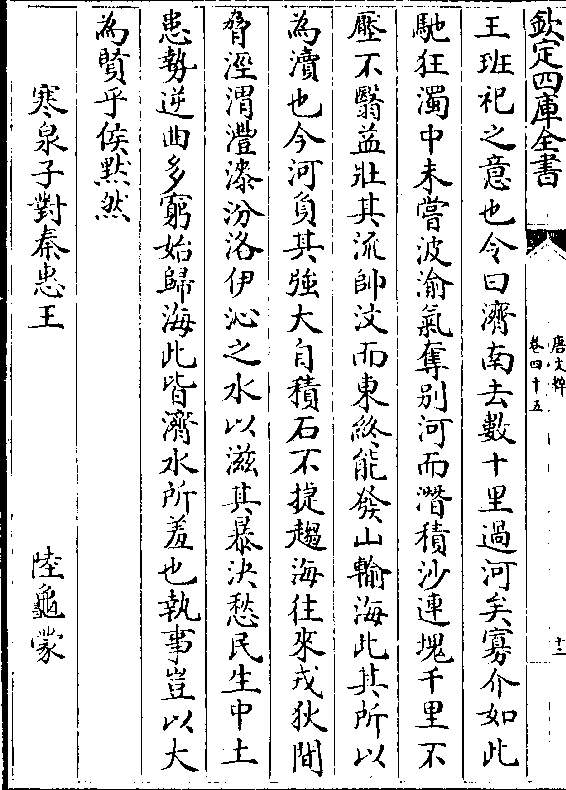 欽定四庫全書
唐文粹
卷四十五
十二
王班祀之意也令曰濟南去數十里過河矣寡介如此
馳狂濁中未嘗波渝氣奪别河而潛積沙連塊千里不
壓不翳益壯其流帥汶而東終能發山輸海此其所以
為瀆也今河負其強大自積石不捷趨海往來戎狄間
脅涇渭灃漆汾洛伊沁之水以滋其暴決愁民生中土
患勢逆曲多窮始歸海此皆濟水所羞也執事豈以大
為賢乎侯默然
寒泉子對秦惠王
陸龜蒙